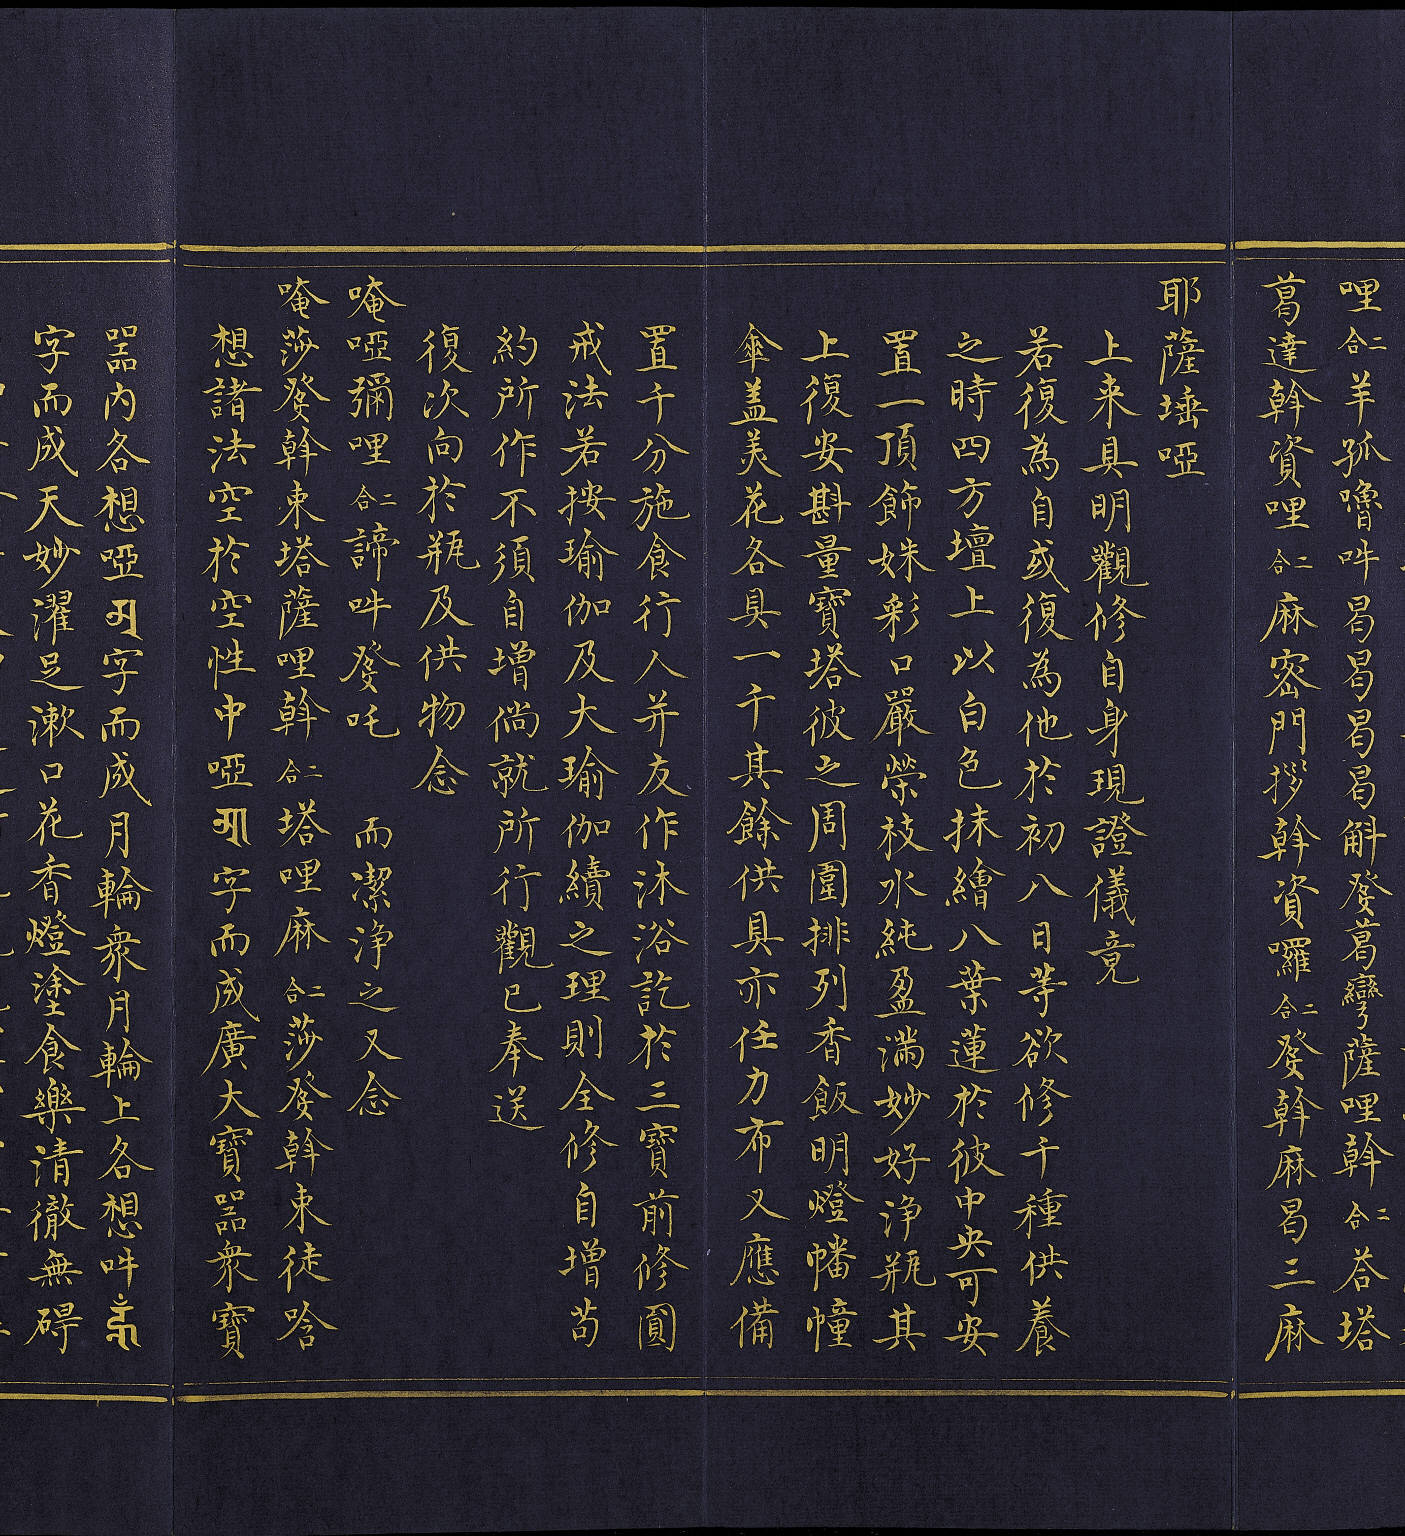 哩二合羊孤嚕吽曷曷曷曷斛發葛彎薩哩斡二合荅塔
葛達斡資哩二合麻密門拶斡資囉二合發斡麻曷三麻
耶薩埵啞
上来具明觀修自身現證儀竟
若復為自或復為他於初八日等欲修千種供養
之時四方壇上以白色抹繪八葉蓮於彼中央可安
置一頂飾姝彩口嚴榮枝水純盈滿妙好淨瓶其
上復安斟量寶塔彼之周圍排列香飯明燈幡幢
傘盖美花各具一千其餘供具亦任力布又應備
置千分施食行人并友作沐浴訖於三寶前修圓
戒法若按瑜伽及大瑜伽續之理則全修自增茍
約所作不須自增倘就所行觀已奉送
復次向於瓶及供物念
唵啞彌哩二合諦吽發吒 而潔淨之又念
唵莎發斡束塔薩哩斡二合塔哩麻二合莎發斡束徒唅
想諸法空於空性中啞𑖁字而成廣大寶器衆寶
器内各想啞𑖀字而成月輪衆月輪上各想吽𑖮𑖳𑖽
字而成天妙濯足漱口花香燈塗食樂清徹無碍